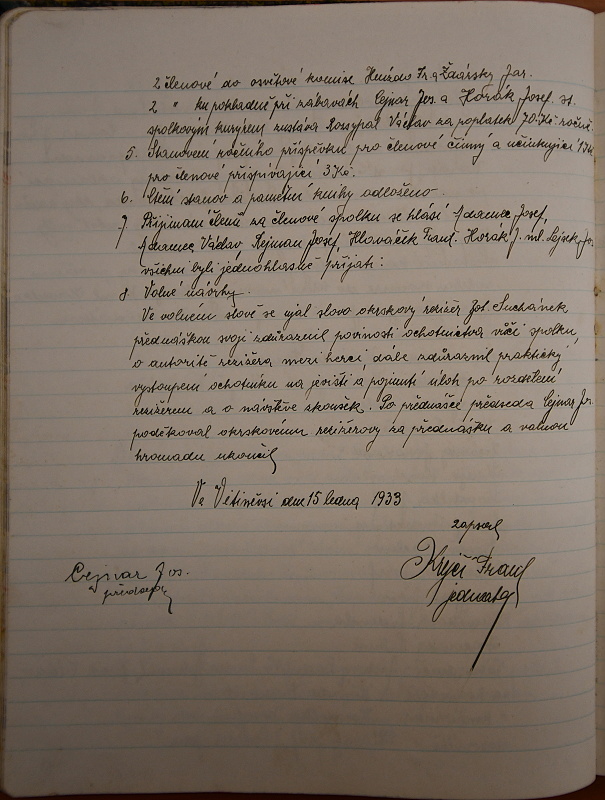 2 členové do osvětové komise Hnízdo Fr. a Žďárský Jar.
2 " ku pokladně při zábavách Cejnar Jos. a Horák Josef. st.
spolkovým kurýrem zustává Rossypal Václav za poplatek 70 Kč ročně.
5. Stanovení ročního příspěvku pro členové činný a účinkující
pro členové přispívající 3 Kč.
6. Čtění stanov a pamětní knihy odloženo.
7 Přijímaní členů za členové spolku se hlásí Adamec Josef,
Adamec Václav Rejman Josef, Hlaváček Frant. Horák J. ml. Lejsek Jos.
všichni byli jednohlasně přijati:
8. Volné návrhy.
Ve volném slově se ujal slovo okrskový režizér Jos. Suchánek
přednáškou svojí zdůraznil povinosti ochotnictva vůči spolku,
o autoritě režizéra mezi herci, dále zdůraznil praktický
vystoupení ochotníku na jevišti a pojmutí úloh po rozdělení
režizérem a o návštěvě zkoušek. Po přednášce předseda Cejnar Jos.
poděkoval okrskovému režizérovy za přednášku a valnou
hromadu ukončil
Ve Větiněvsi dne 15 ledna 1933
zapsal
Cejnar Jos. Krejčí Frant
předseda jednatel